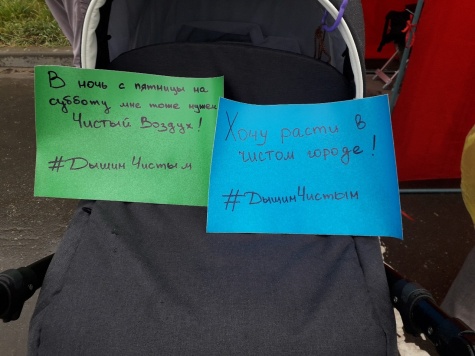 В ночь с пятницы на
субботу мне тоже нужен
Чистый Воздух!
#ДышимЧистым
Хочу расти в
чистом городе!
#ДышимЧистым